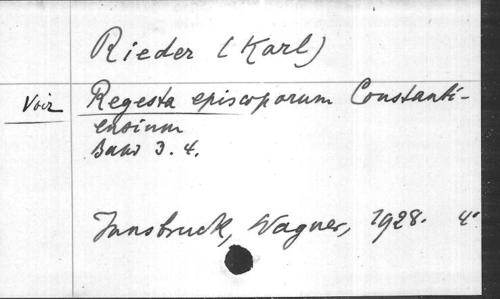 Rieder (Karl)
Voir Regesta episcoporum Constanti-
ensium
Band 3. 4.
Innsbruck, Wagner, 1928. 4°